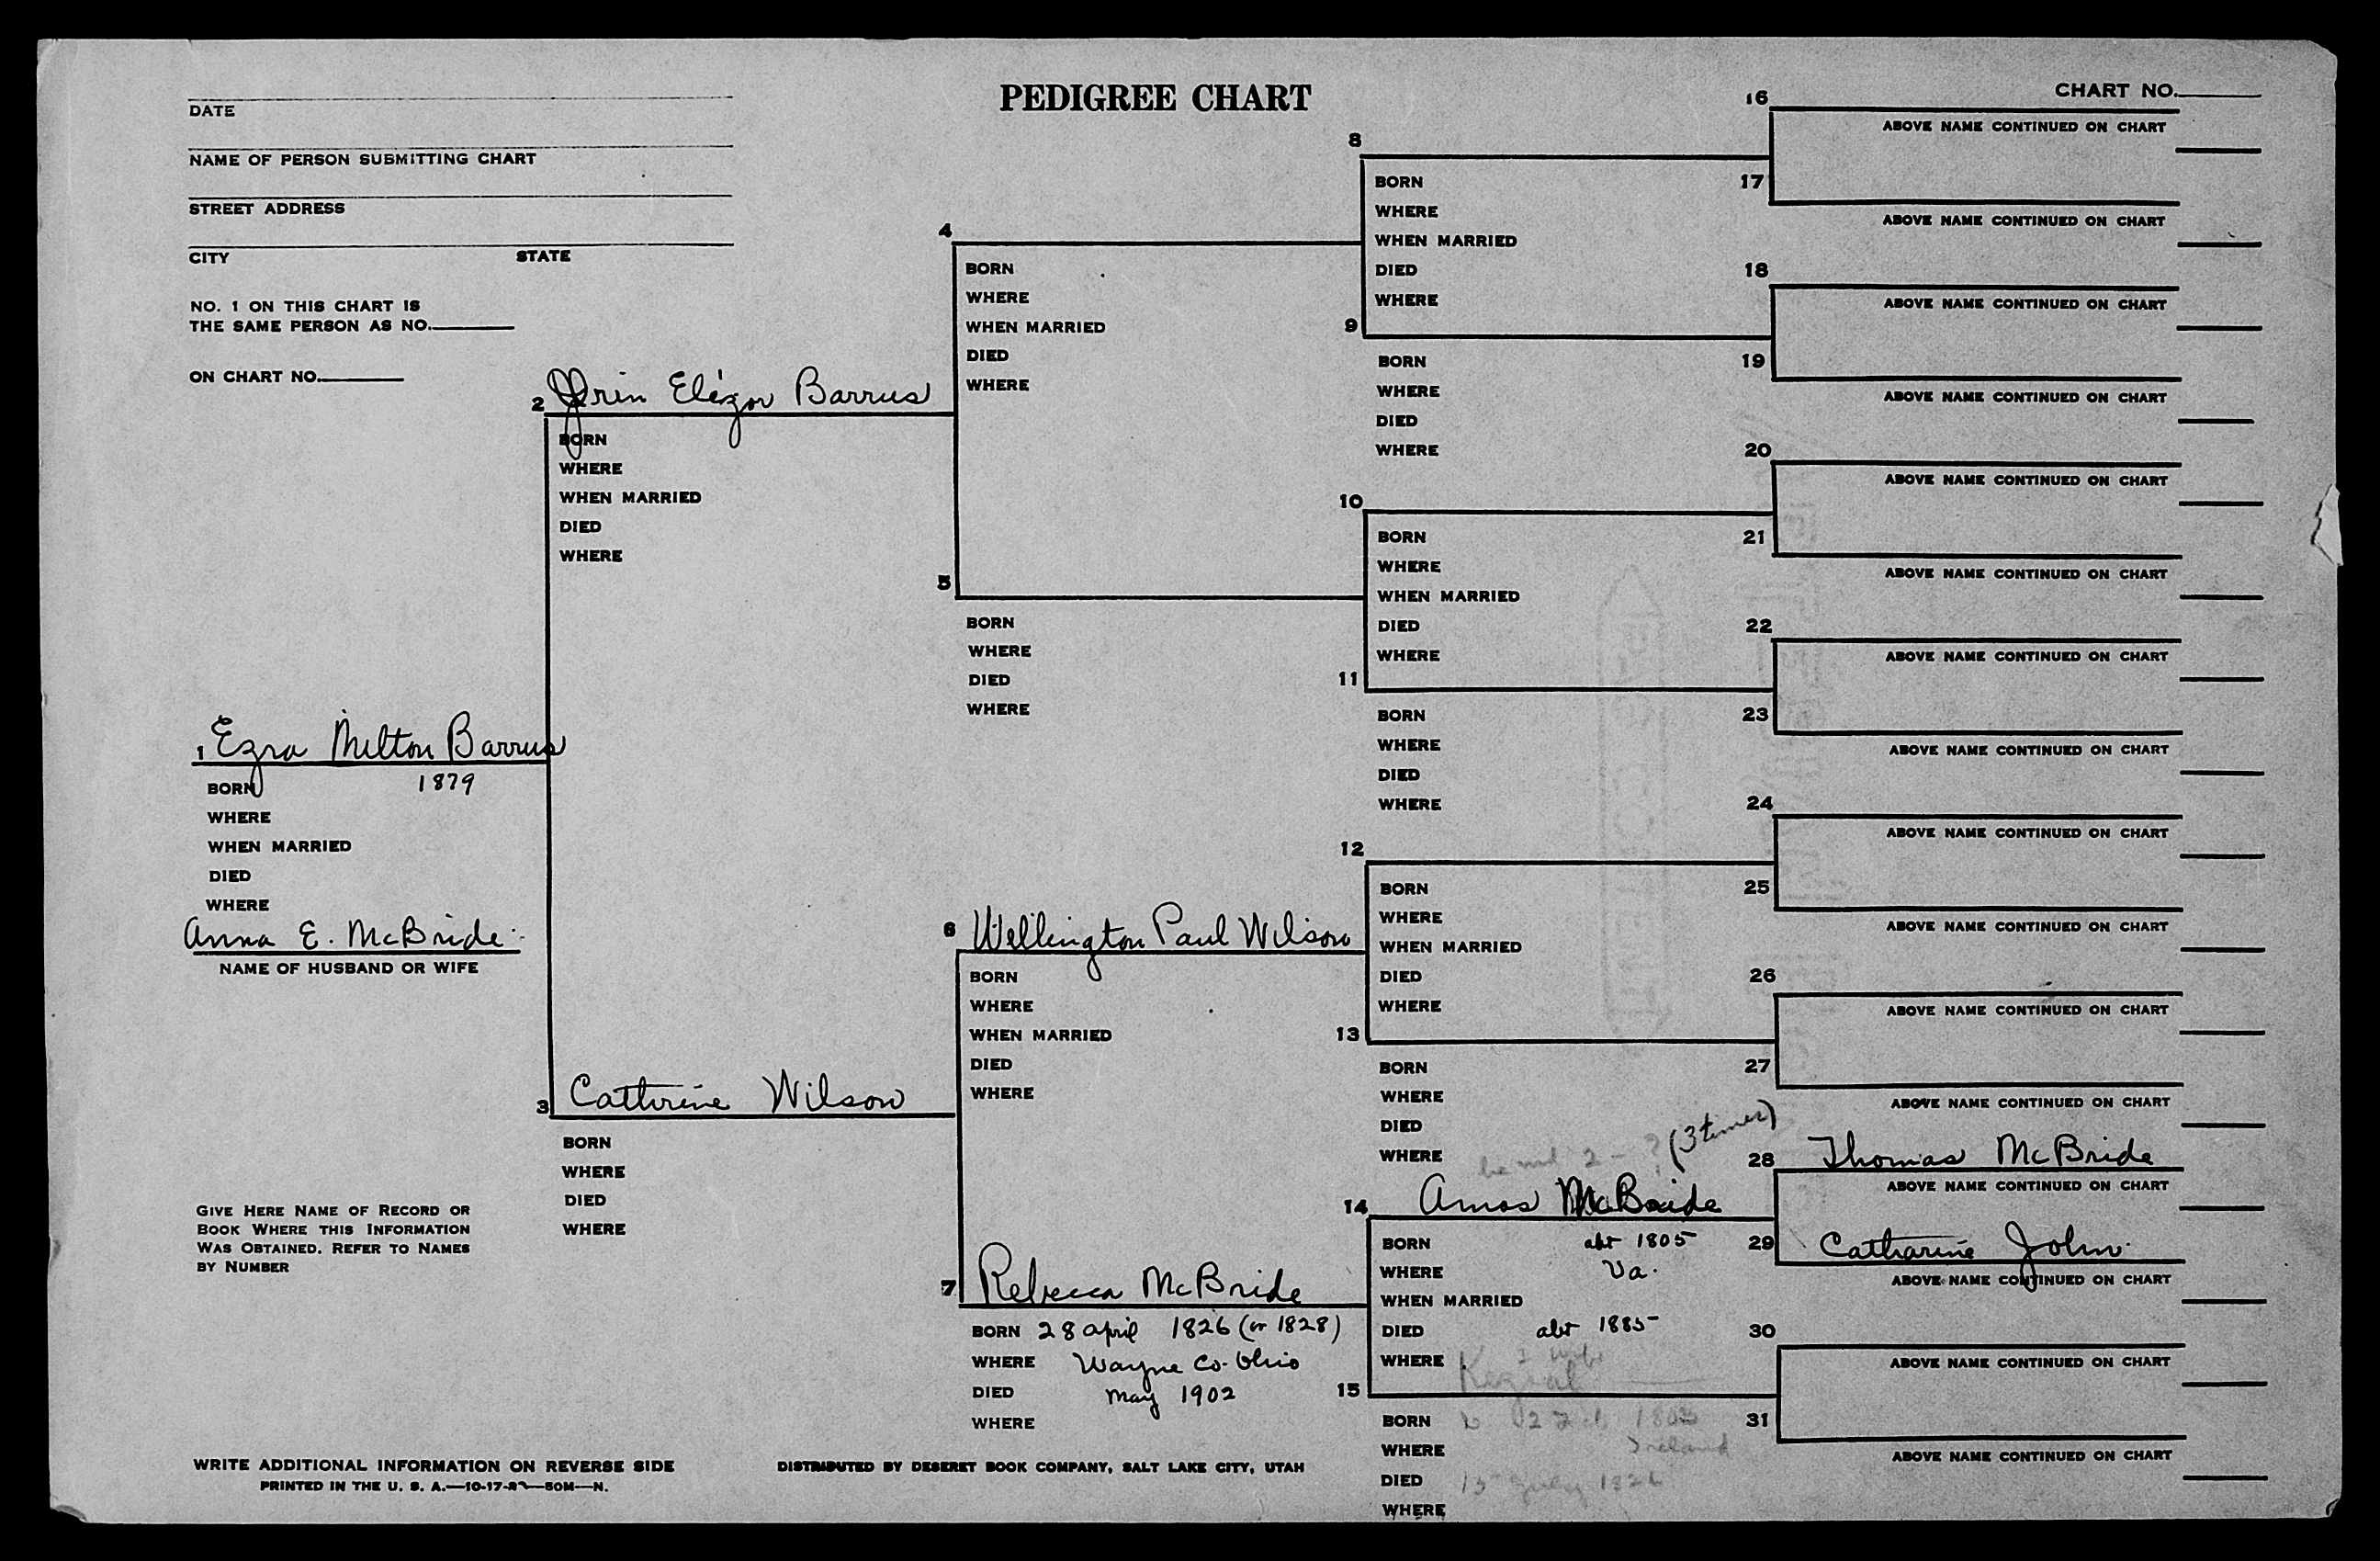 PEDIGREE CHART
CHART NO.
DATE
NAME OF PERSON SUBMITTING CHART
STREET ADDRESS
CITY STATE
NO. 1 ON THIS CHART IS
THE SAME PERSON AS NO.
ON CHART NO.
1 Ezra Milton Barrus
BORN 1879
WHERE
WHEN MARRIED
DIED
WHERE
Anna E. McBride
NAME OF HUSBAND OR WIFE
GIVE HERE NAME OF RECORD OR
BOOK WHERE THIS INFORMATION
WAS OBTAINED. REFER TO NAMES
BY NUMBER
2 Orin Barrus
BORN
WHERE
WHEN MARRIED
DIED
WHERE
3 Cathrine Wilson
BORN
WHERE
DIED
WHERE
4
BORN
WHERE
WHEN MARRIED
DIED
WHERE
5
BORN
WHERE
DIED
WHERE
6 Wellington Paul Wilson
BORN
WHERE
WHEN MARRIED
DIED
WHERE
7 Rebecca McBride
BORN 28 April 1826 (or 1828)
WHERE Wayne Co. Ohio
DIED May 1902
WHERE
8
BORN
WHERE
WHEN MARRIED
DIED
WHERE
9
BORN
WHERE
DIED
WHERE
10
BORN
WHERE
WHEN MARRIED
DIED
WHERE
11
BORN
WHERE
DIED
WHERE
12
BORN
WHERE
WHEN MARRIED
DIED
WHERE
13
BORN
WHERE
DIED
WHERE
2 - ? (3 times)
14 Amos McBride
BORN abt 1805
WHERE Va.
WHEN MARRIED
DIED abt 1885
WHERE
15 Keziah
BORN
WHERE Ireland
DIED 15 July
WHERE
16
ABOVE NAME CONTINUED ON CHART
17
ABOVE NAME CONTINUED ON CHART
18
ABOVE NAME CONTINUED ON CHART
19
ABOVE NAME CONTINUED ON CHART
20
ABOVE NAME CONTINUED ON CHART
21
ABOVE NAME CONTINUED ON CHART
22
ABOVE NAME CONTINUED ON CHART
23
ABOVE NAME CONTINUED ON CHART
24
ABOVE NAME CONTINUED ON CHART
25
ABOVE NAME CONTINUED ON CHART
26
ABOVE NAME CONTINUED ON CHART
27
ABOVE NAME CONTINUED ON CHART
28 Thomas McBride
ABOVE NAME CONTINUED ON CHART
29 Catharine John
ABOVE NAME CONTINUED ON CHART
30
ABOVE NAME CONTINUED ON CHART
31
ABOVE NAME CONTINUED ON CHART
WRITE ADDITIONAL INFORMATION ON REVERSE SIDE
DISTRIBUTED BY DESERET BOOK COMPANY, SALT LAKE CITY, UTAH
PRINTED IN THE U. S. A.